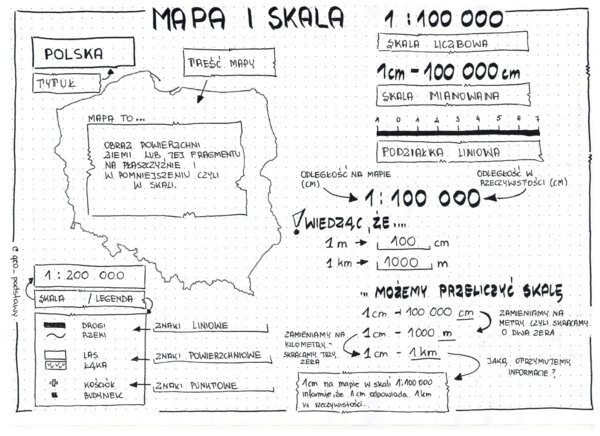 MAPA I SKALA
POLSKA
TYTUŁ
TREŚĆ MAPY
MAPA TO...
OBRAZ POWIERZCHNI
ZIEMI LUB JEJ FRAGMENTU
NA PŁASZCZYŹNIE I
W POMNIEJSZENIU CZYLI
W SKALI.
1:200 000
SKALA / LEGENDA
DROGI
RZEKI
ZNAKI LINIOWE
LAS
ŁĄKA
ZNAKI POWIERZCHNIOWE
KOŚCIÓŁ
BUDYNEK
ZNAKI PUNKTOWE
1:100 000
SKALA LICZBOWA
1cm - 100 000 cm
SKALA MIANOWANA
1 0 1 2 3 4 5 6 7
PODZIAŁKA LINIOWA
ODLEGŁOŚĆ NA MAPIE
(CM)
ODLEGŁOŚĆ W
RZECZYWISTOŚCI (CM)
1:100 000
! WIEDZĄC, ŻE...
1 m → 100 cm
1 km → 1000 m
... MOŻEMY PRZELICZYĆ SKALĘ
1 cm - 100 000 cm
1 cm - 1000 m
1 cm - 1 km
ZAMIENIAMY NA
METRY, CZYLI SKRACAMY
O DWA ZERA
ZAMIENIAMY NA
KILOMETRY -
SKRACAMY TRZY
ZERA
JAKĄ OTRZYMUJEMY
INFORMACJĘ?
1cm na mapie w skali 1:100 000
informuje, że 1cm odpowiada 1km
w rzeczywistości.